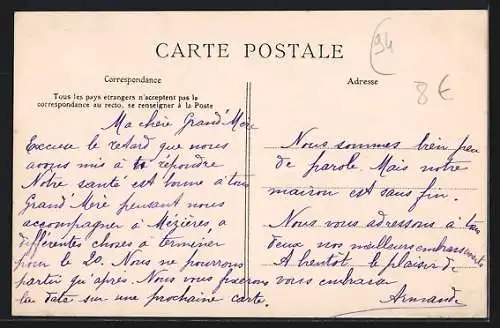 CARTE POSTALE
94
8€
Correspondance
Adresse
Tous les pays étrangers n'acceptent pas la
correspondance au recto, se renseigner à la Poste
Ma chère Grand'Mère
Excuse le retard que nous
avons mis à te répondre
Notre santé est bonne à tous
Grand'Mère pensant nous
accompagner à Mézières, a
différentes choses a terminer
pour le 20. Nous ne pourrons
partir qu'après. Nous vous fixerons
la date sur une prochaine carte.
Nous sommes bien peu
de parole. Mais notre
maison est sans fin.
Nous vous adressons à tous
deux nos meilleurs embrassements
A bientôt le plaisir de
vous embrasser
Armand